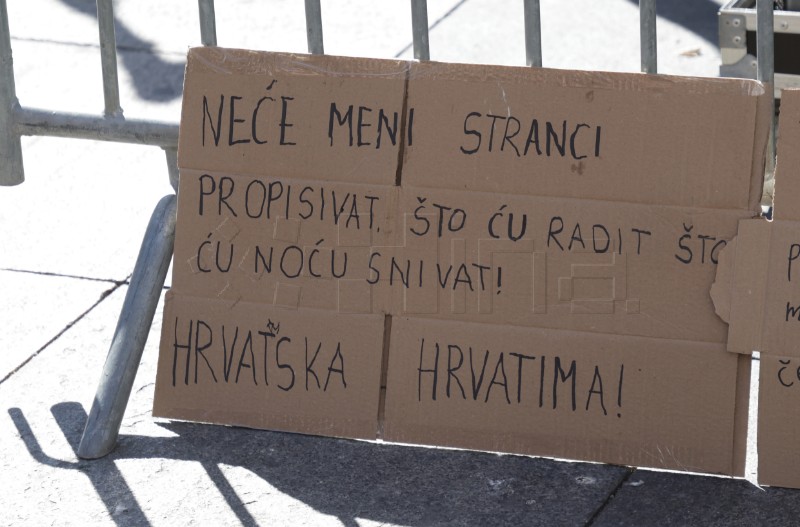 NEĆE MENI STRANCI
PROPISIVAT, ŠTO ĆU RADIT ŠTO
ĆU NOĆU SNIVAT!
HRVATSKA HRVATIMA!